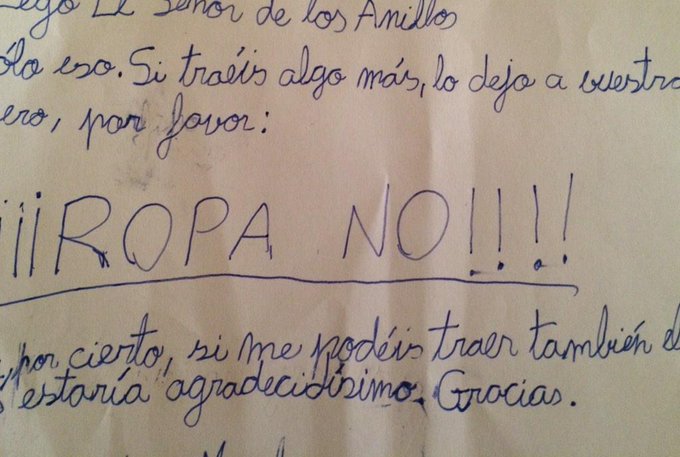 Lego El Señor de los Anillos
sólo eso. Si traéis algo más, lo dejo a vuestra
pero, por favor:
¡¡¡ROPA NO!!!!
por cierto, si me podéis traer también el
estaría agradecidísimo. Gracias.